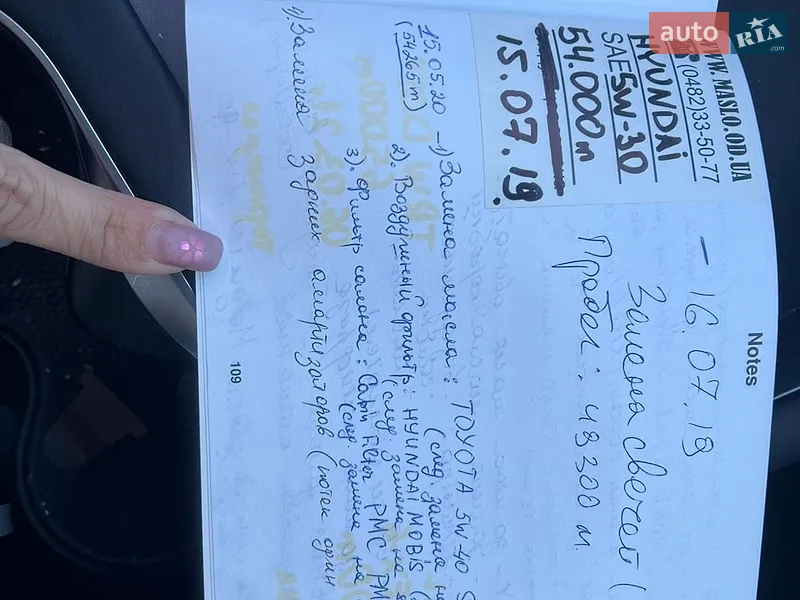 auto RIA .com
WWW.MASLO.OD.UA
(0482)33-50-77
HYUNDAI
SAE 5W-30
54.000 m
15.07.19.
Notes
– 16.07.19
Замена свечей (
Пробег: 48300 м.
15.05.20 – 1) Замена масла: TOYOTA 5W-40
(54265 m) (след. замена на
2). Воздушный фильтр: HYUNDAI MOBIS (
(след. замена на
3). Фильтр салона: Cabin Filter PMC
(след. замена на
4). Замена задних амортизаторов (потек один
109